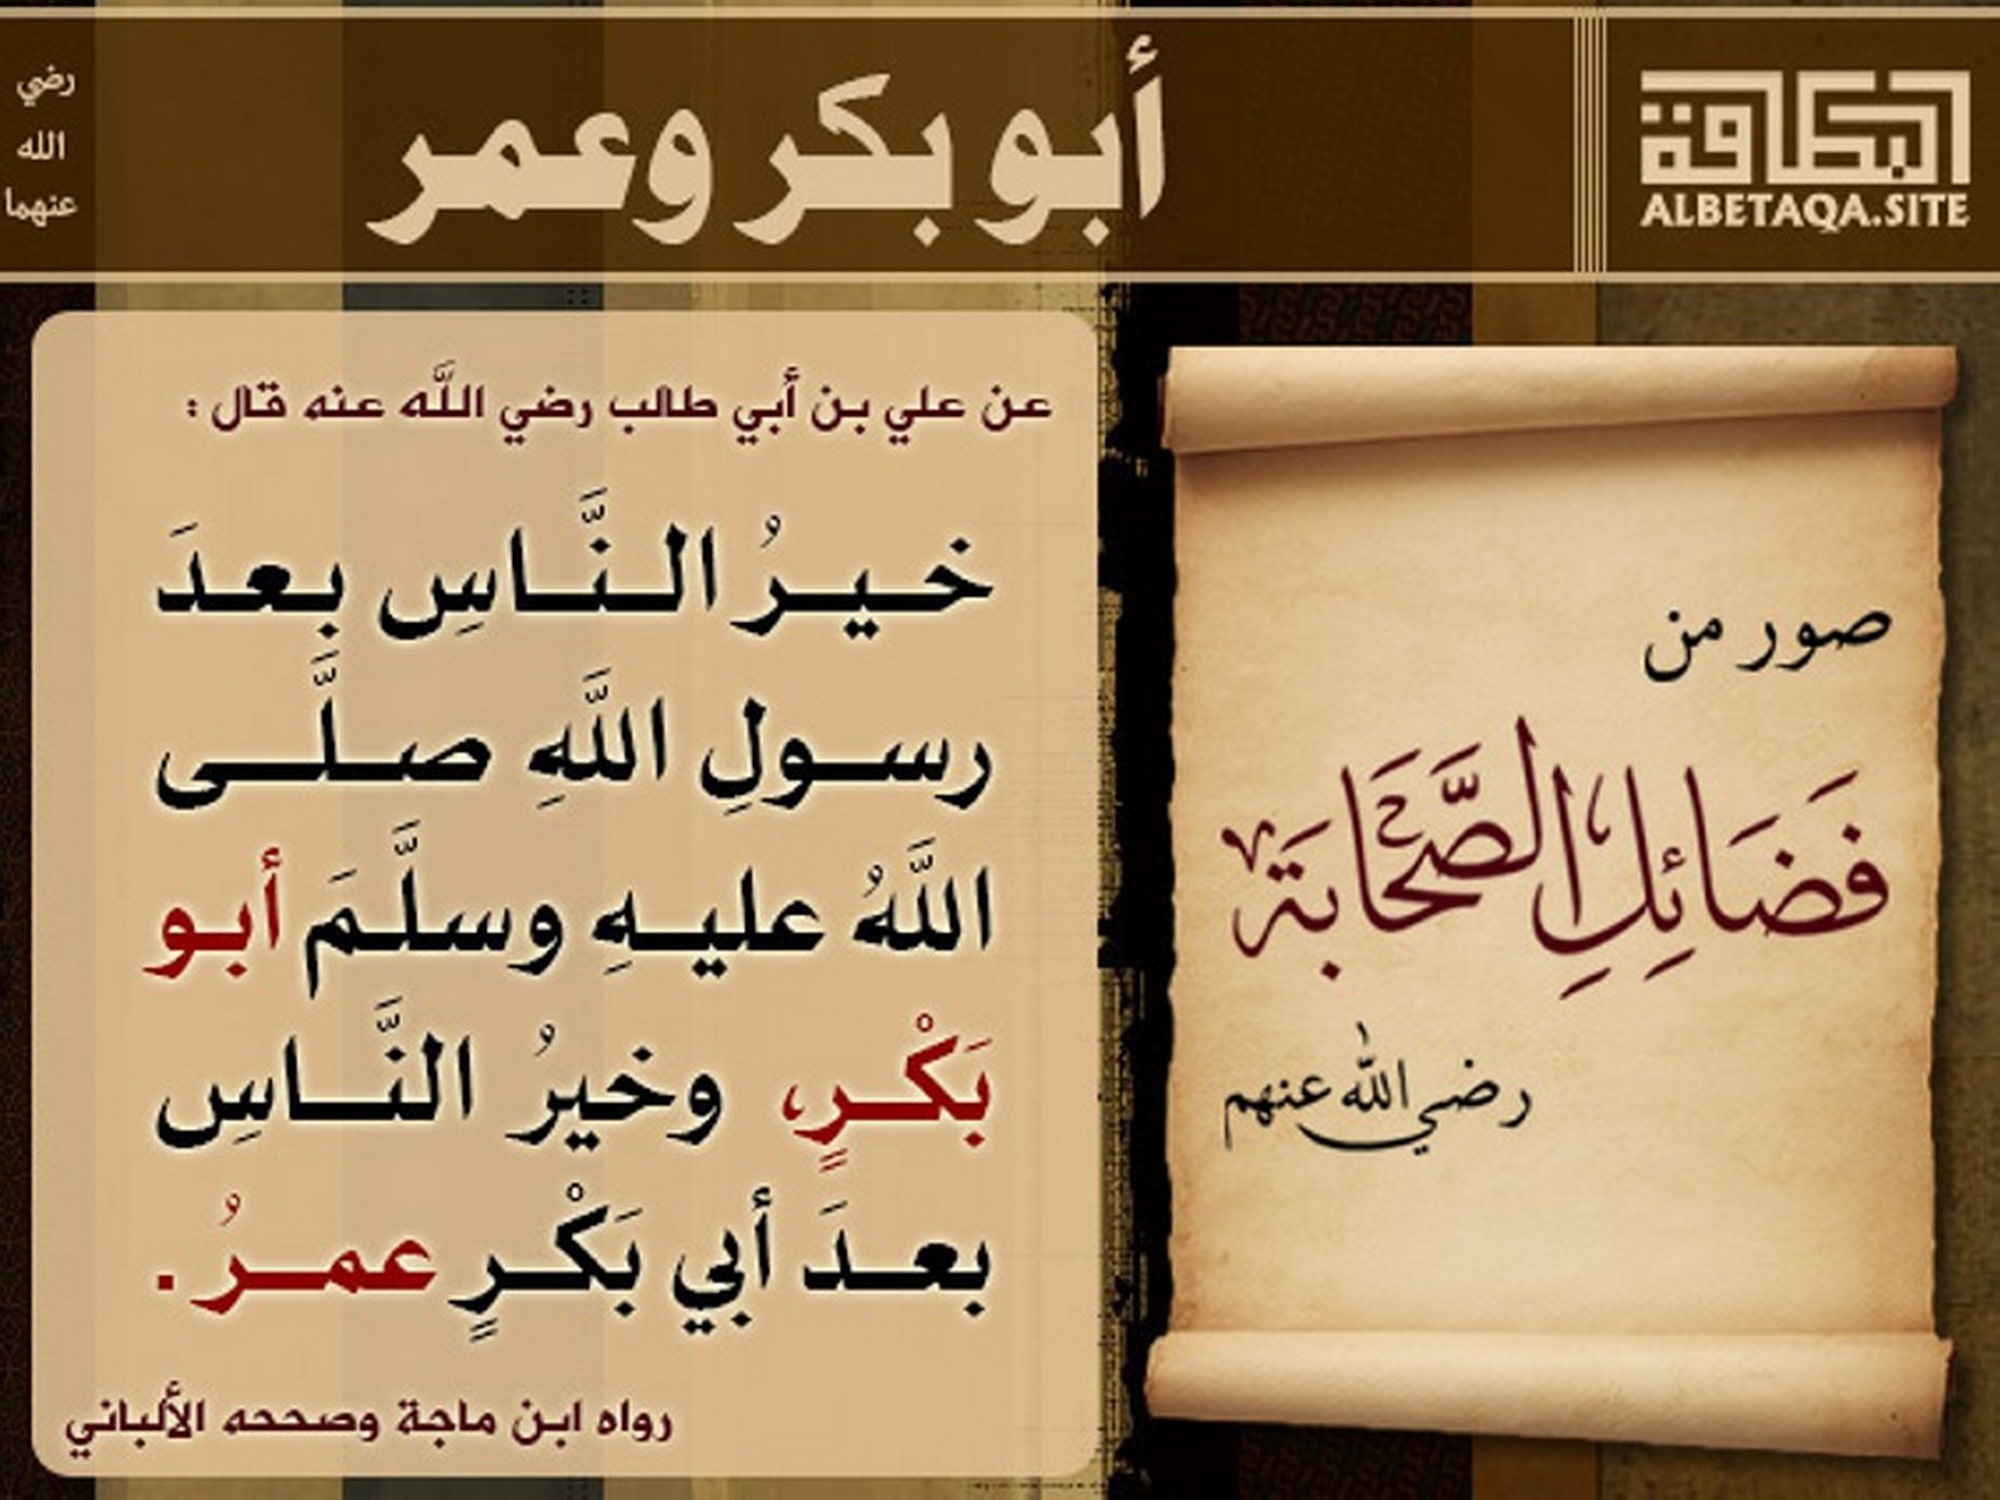 البطاقة
ALBETAQA.SITE
أبو بكر وعمر
رضي
الله
عنهما
صور من
فَضَائِلِ الصَّحَابَةِ
رضي الله عنهم
عن علي بن أبي طالب رضي اللَّه عنه قال :
خيرُ النَّاسِ بعدَ
رسولِ اللَّهِ صلَّى
اللَّهُ عليهِ وسلَّمَ أبو
بَكْرٍ، وخيرُ النَّاسِ
بعدَ أبي بَكْرٍ عمرُ .
رواه ابن ماجة وصححه الألباني